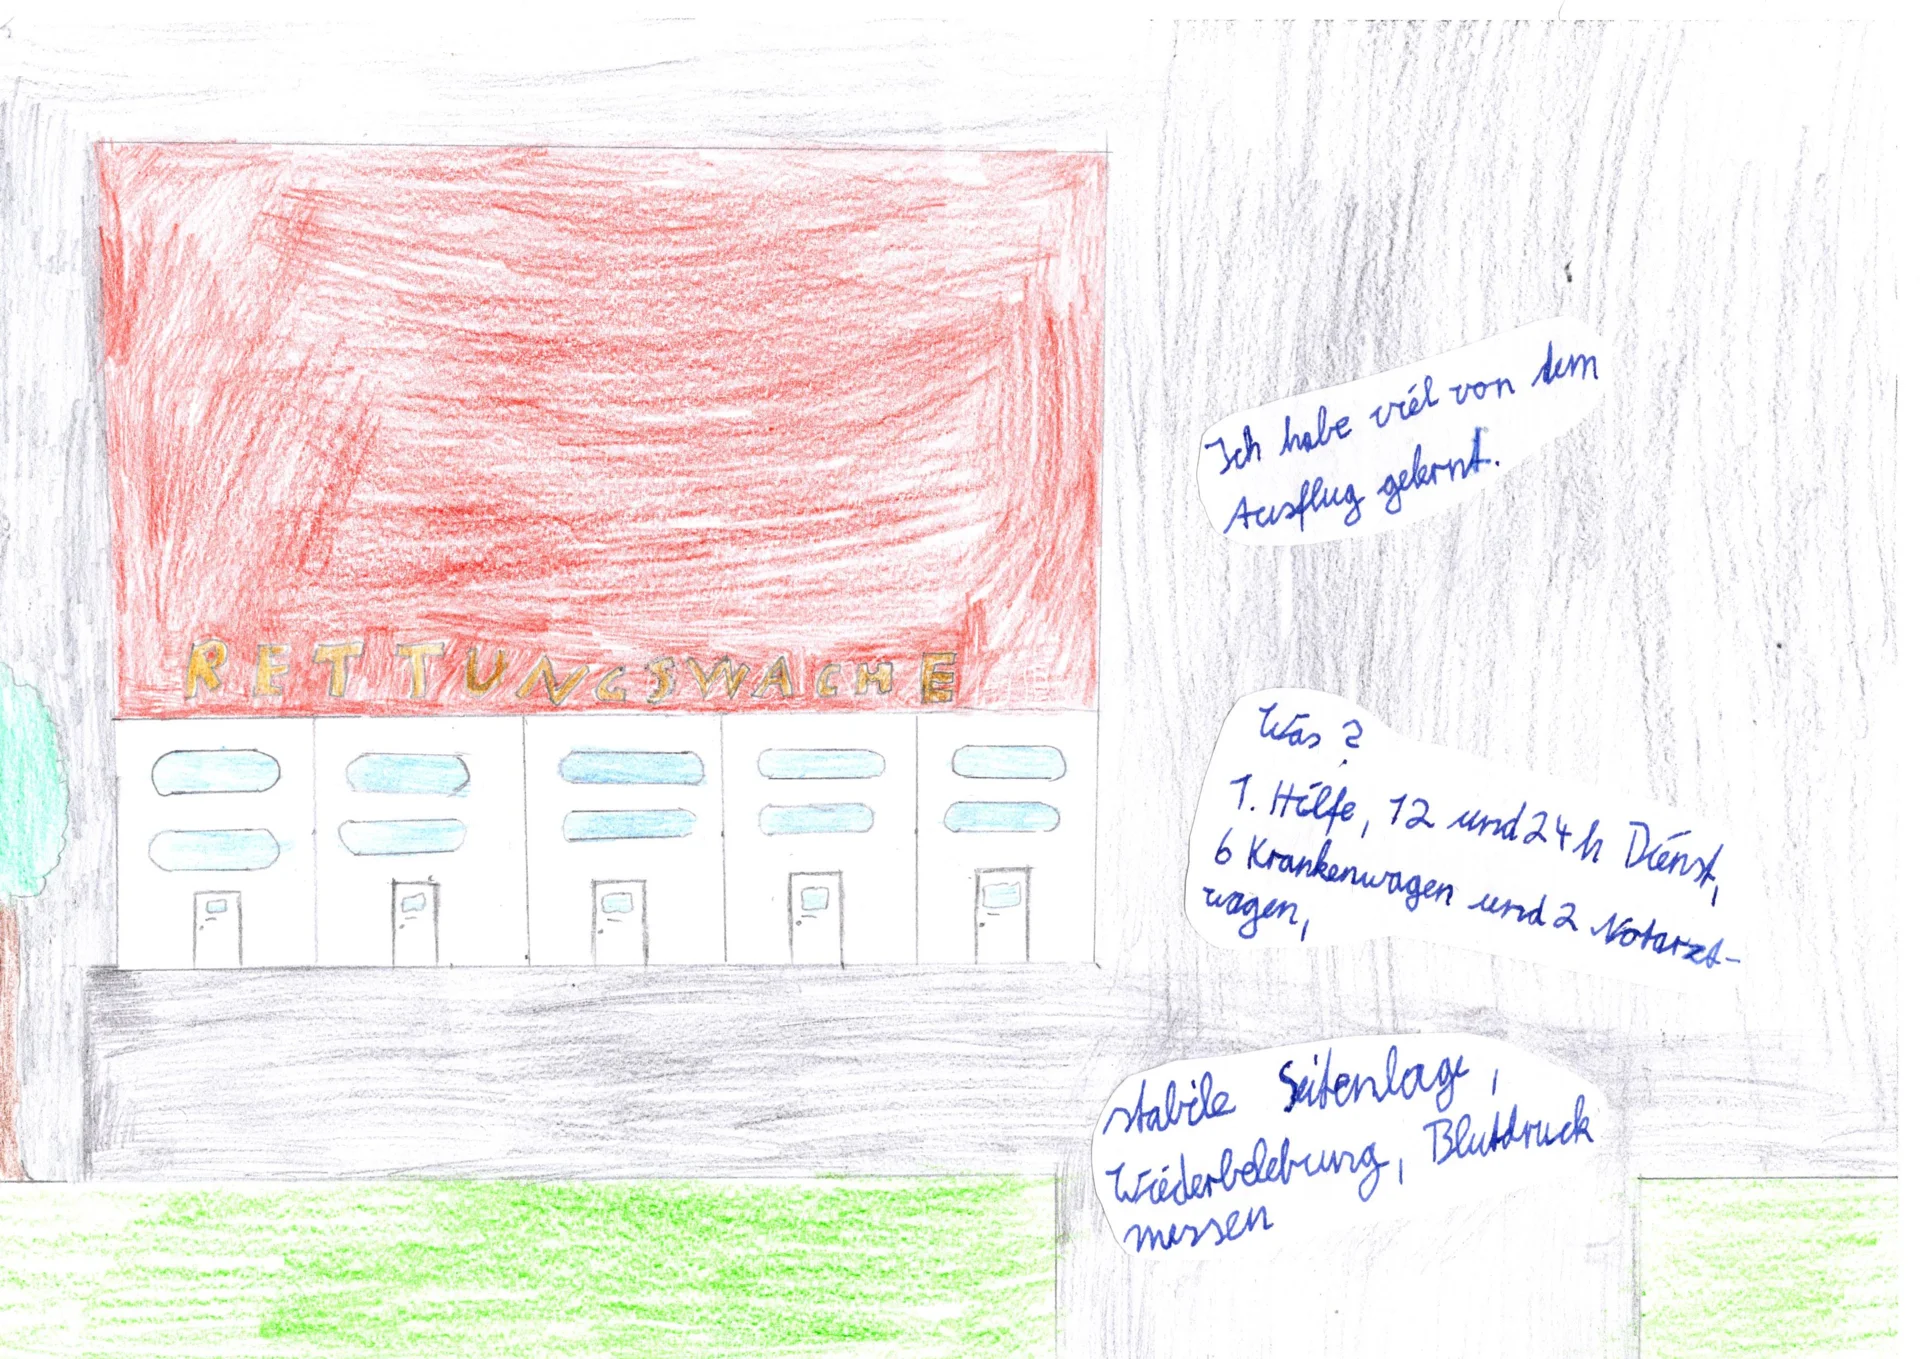 RETTUNGSWACHE
Ich habe viel von dem
Ausflug gelernt.
Was?
1. Hilfe, 12 und 24 h Dienst,
6 Krankenwagen und 2 Notarzt-
wagen,
stabile Seitenlage,
Wiederbelebung, Blutdruck
messen